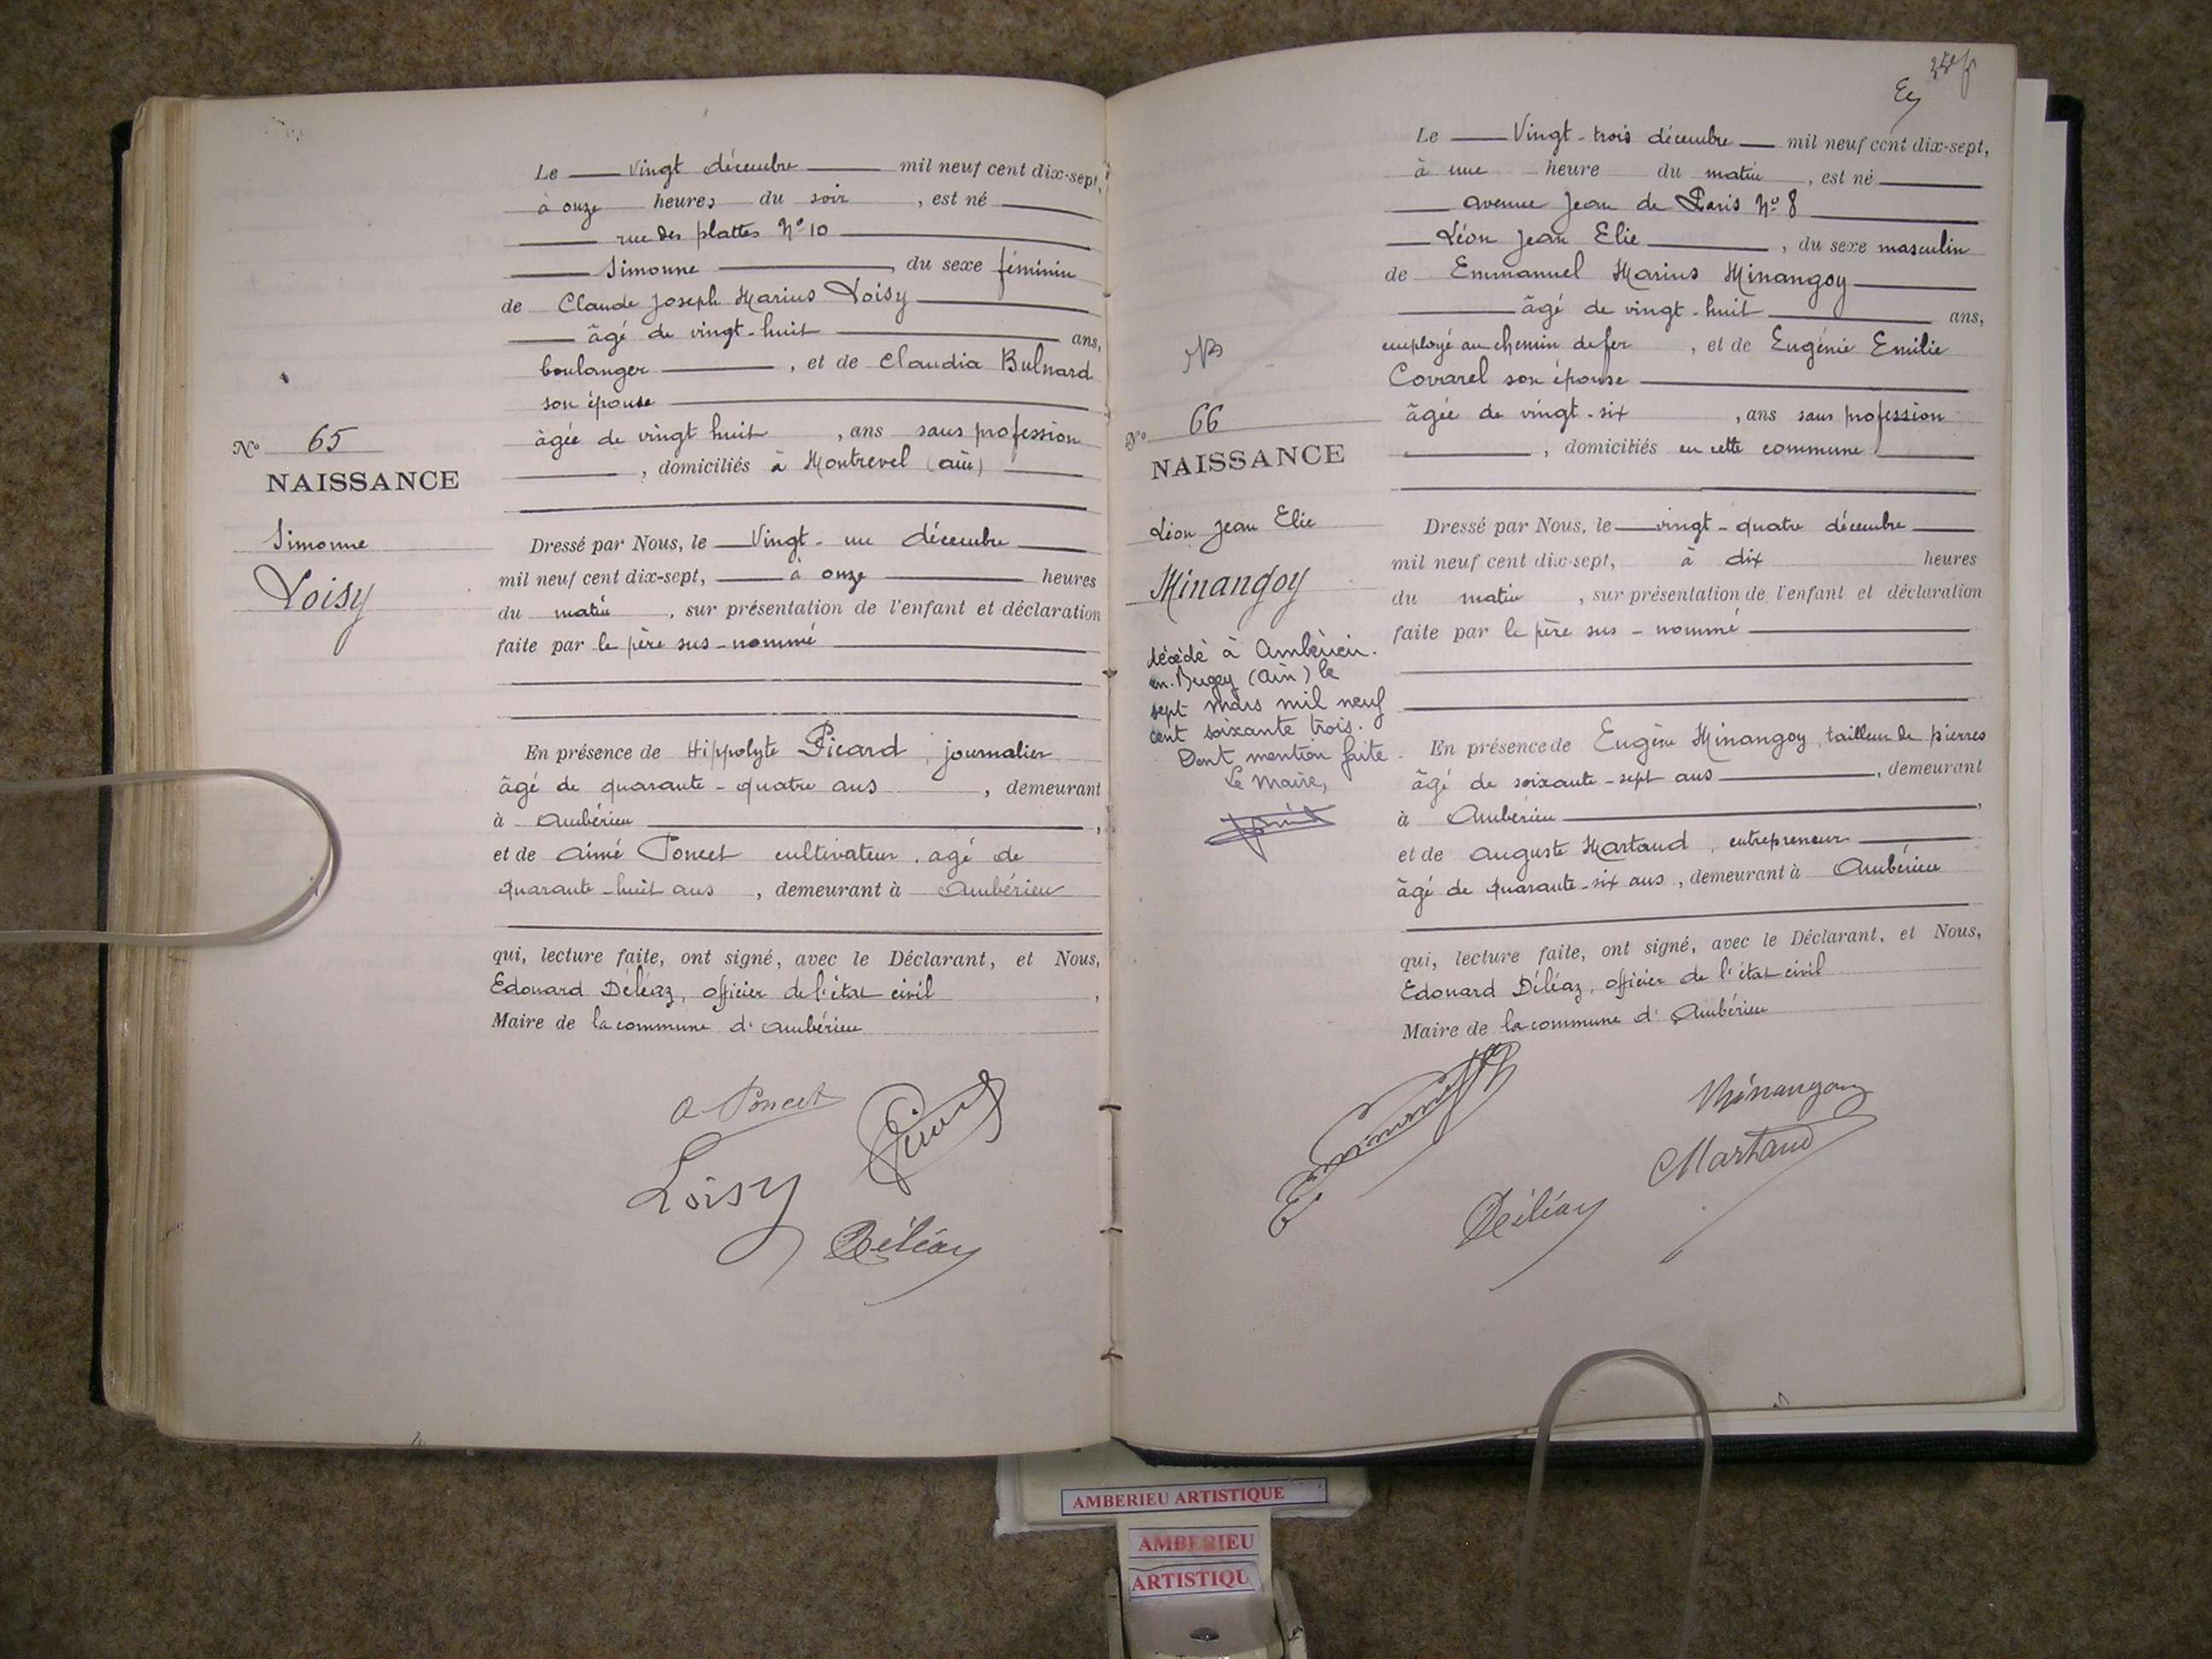 Le vingt décembre mil neuf cent dix-sept,
à onze heures du soir, est né
rue des plattes N° 10
Simonne, du sexe féminin
de Claude Joseph Marius Loisy
âgé de vingt-huit ans,
boulanger, et de Claudia Bulnard
son épouse
âgée de vingt huit, ans sans profession
, domiciliés à Montrevel (ain)
N° 65
NAISSANCE
Simonne
Loisy
Dressé par Nous, le Vingt-un décembre
mil neuf cent dix-sept, à onze heures
du matin, sur présentation de l'enfant et déclaration
faite par le père sus-nommé
En présence de Hippolyte Picard, journalier
âgé de quarante-quatre ans, demeurant
à Ambérieu,
et de Aimé Poncet cultivateur, agé de
quarante-huit ans, demeurant à Ambérieu
qui, lecture faite, ont signé, avec le Déclarant, et Nous,
Edouard Déléaz, officier de l'état civil,
Maire de la commune d'Ambérieu
A Poncet
Loisy
Déléaz
Le Vingt-trois décembre mil neuf cent dix-sept,
à une heure du matin, est né
avenue Jean de Paris N° 8
Léon Jean Elie, du sexe masculin
de Emmanuel Marius Minangoy
âgé de vingt-huit ans,
employé au chemin de fer, et de Eugénie Emilie
Covarel son épouse
âgée de vingt-six, ans sans profession
, domiciliés en cette commune
N° 66
NAISSANCE
Léon Jean Elie
Minangoy
décédé à Ambérieu-
en-Bugey (Ain) le
sept mars mil neuf
cent soixante trois.
Dont mention faite.
Le Maire,
Dressé par Nous, le vingt-quatre décembre
mil neuf cent dix-sept, à dix heures
du matin, sur présentation de l'enfant et déclaration
faite par le père sus-nommé
En présence de Eugène Minangoy, tailleur de pierres
âgé de soixante-sept ans, demeurant
à Ambérieu,
et de Auguste Martaud, entrepreneur
âgé de quarante-six ans, demeurant à Ambérieu
qui, lecture faite, ont signé, avec le Déclarant, et Nous,
Edouard Déléaz, officier de l'état civil
Maire de la commune d'Ambérieu
Minangoy
Martaud
Déléaz
AMBERIEU ARTISTIQUE
AMBERIEU
ARTISTIQU